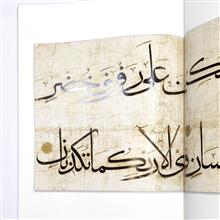 على رفرف خضر
سان فبأى الاء ربكما تكذبان